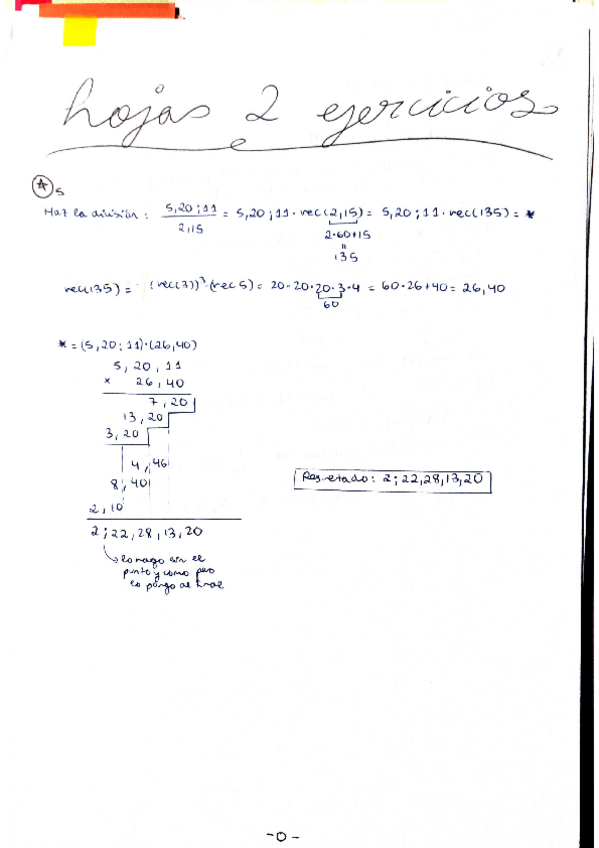 hojas 2 ejercicios
A 5
Haz la división: 5,20;11 / 2,15 = 5,20;11 · rec(2,15) = 5,20;11 · rec(135) = *
2·60+15
=
135
rec(135) = (rec(3))³·(rec 5) = 20·20·20·3·4 = 60·26+40 = 26,40
60
* = (5,20;11)·(26,40)
5, 20, 11
× 26, 40
7, 20
13, 20
3, 20
4, 46
8, 40
2, 10
2;22,28,13,20
lo hago sin el
punto y coma pero
lo pongo al final
Resultado: 2;22,28,13,20
-0-